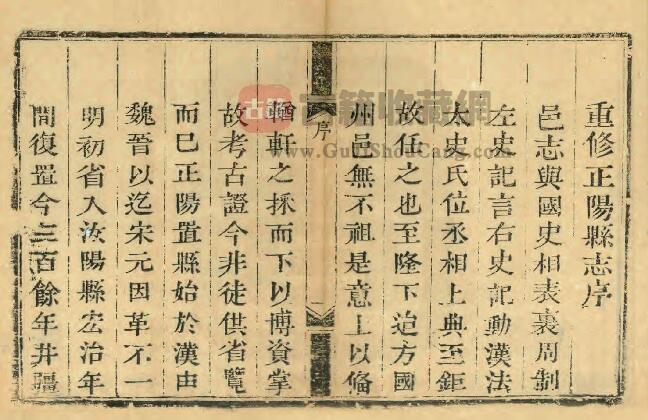 重修正陽縣志序
邑志與國史相表裏周制
左史記言右史記動漢法
太史氏位丞相上典至鉅
故任之也至隆下迨方國
州邑無不祖是意上以偹
序
一
輶軒之採而下以博資掌
故考古證今非徒供省覽
而巳正陽置縣始於漢由
魏晉以迄宋元因革不一
明初省入汝陽縣宏治年
間復置今三百餘年井疆
古籍收藏網
www.GujiShouCang.com